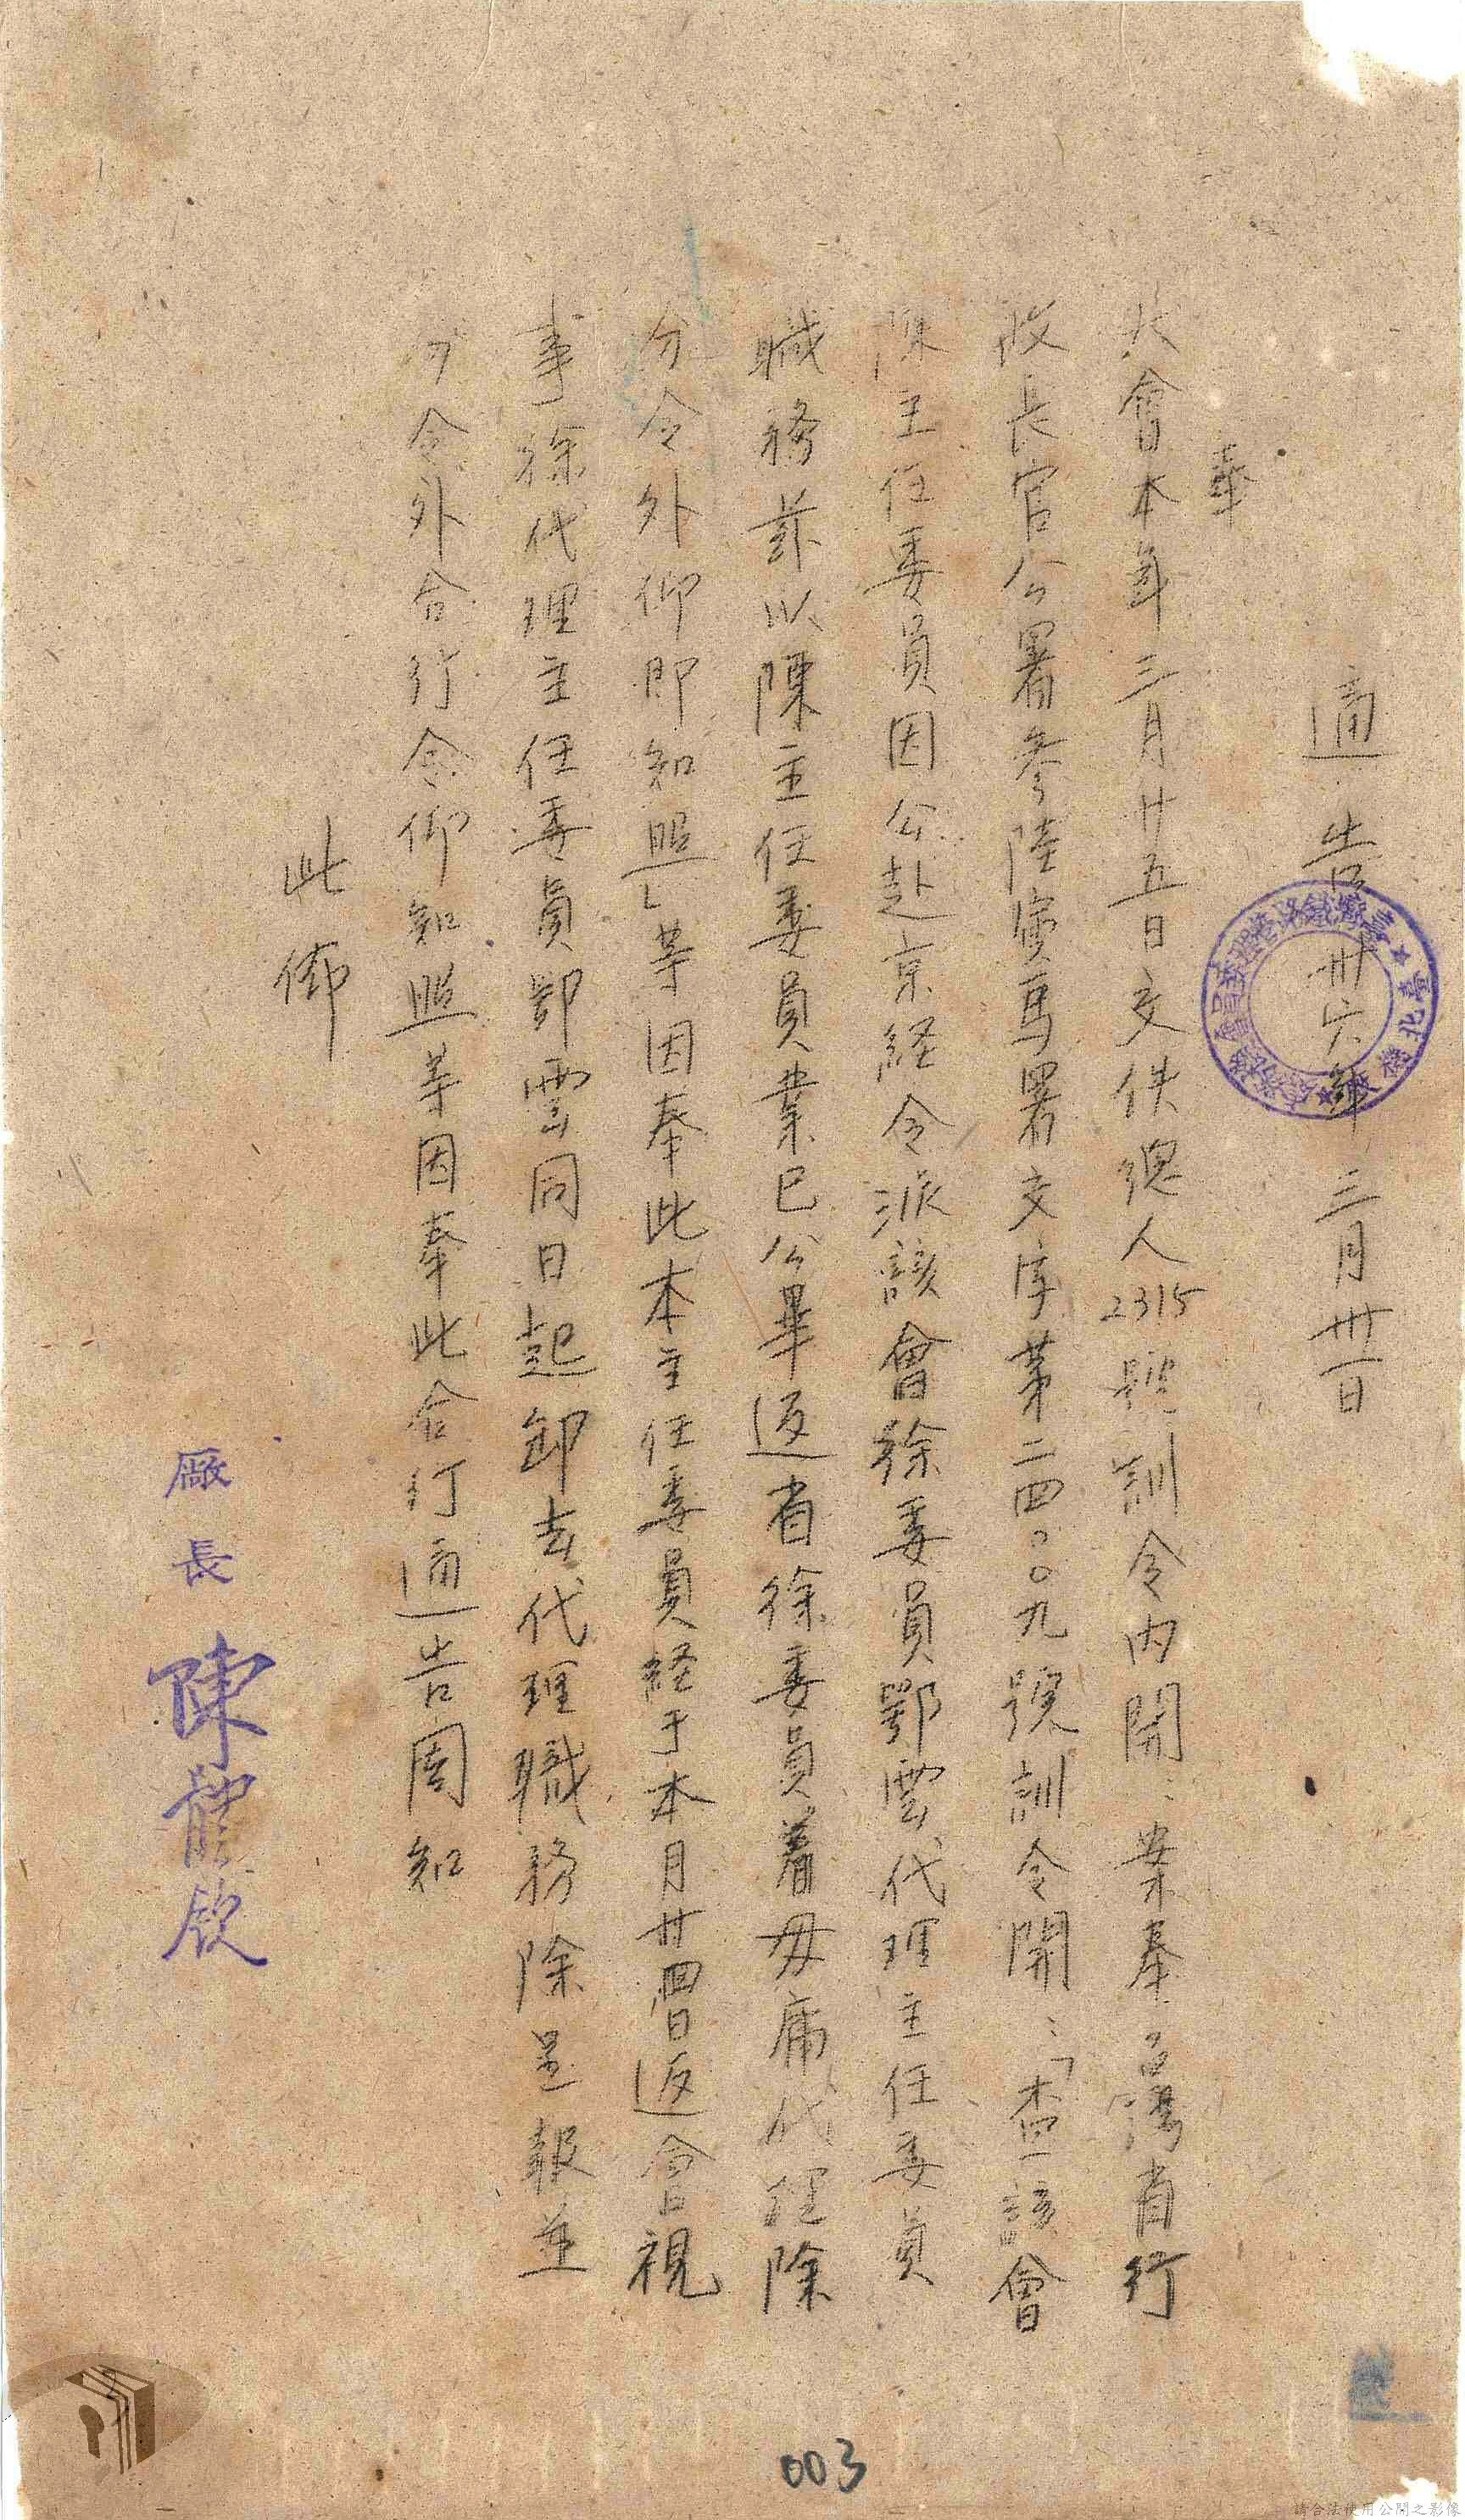 通告 卅六年三月卅一日
奉
大會本年三月廿五日交佚總人2315號訓令內開:案奉臺灣省行
政長官公署參陸寅馬署交字第二四〇〇九號訓令開:「查該會
陳主任委員因公赴京経令派該會徐委員鄂雲代理主任委員
職務茲以陳主任委員業已公畢返省徐委員着毋庸代理除
分令外仰即知照」等因奉此本主任委員経于本月廿四日返會視
事徐代理主任委員鄂雲同日起卸去代理職務除呈報並
分令外合行令仰知照等因奉此合行通告周知
此佈
廠長 陳體欽
臺灣鐵路管理委員會 臺北機廠
003
請合法使用公開之影像